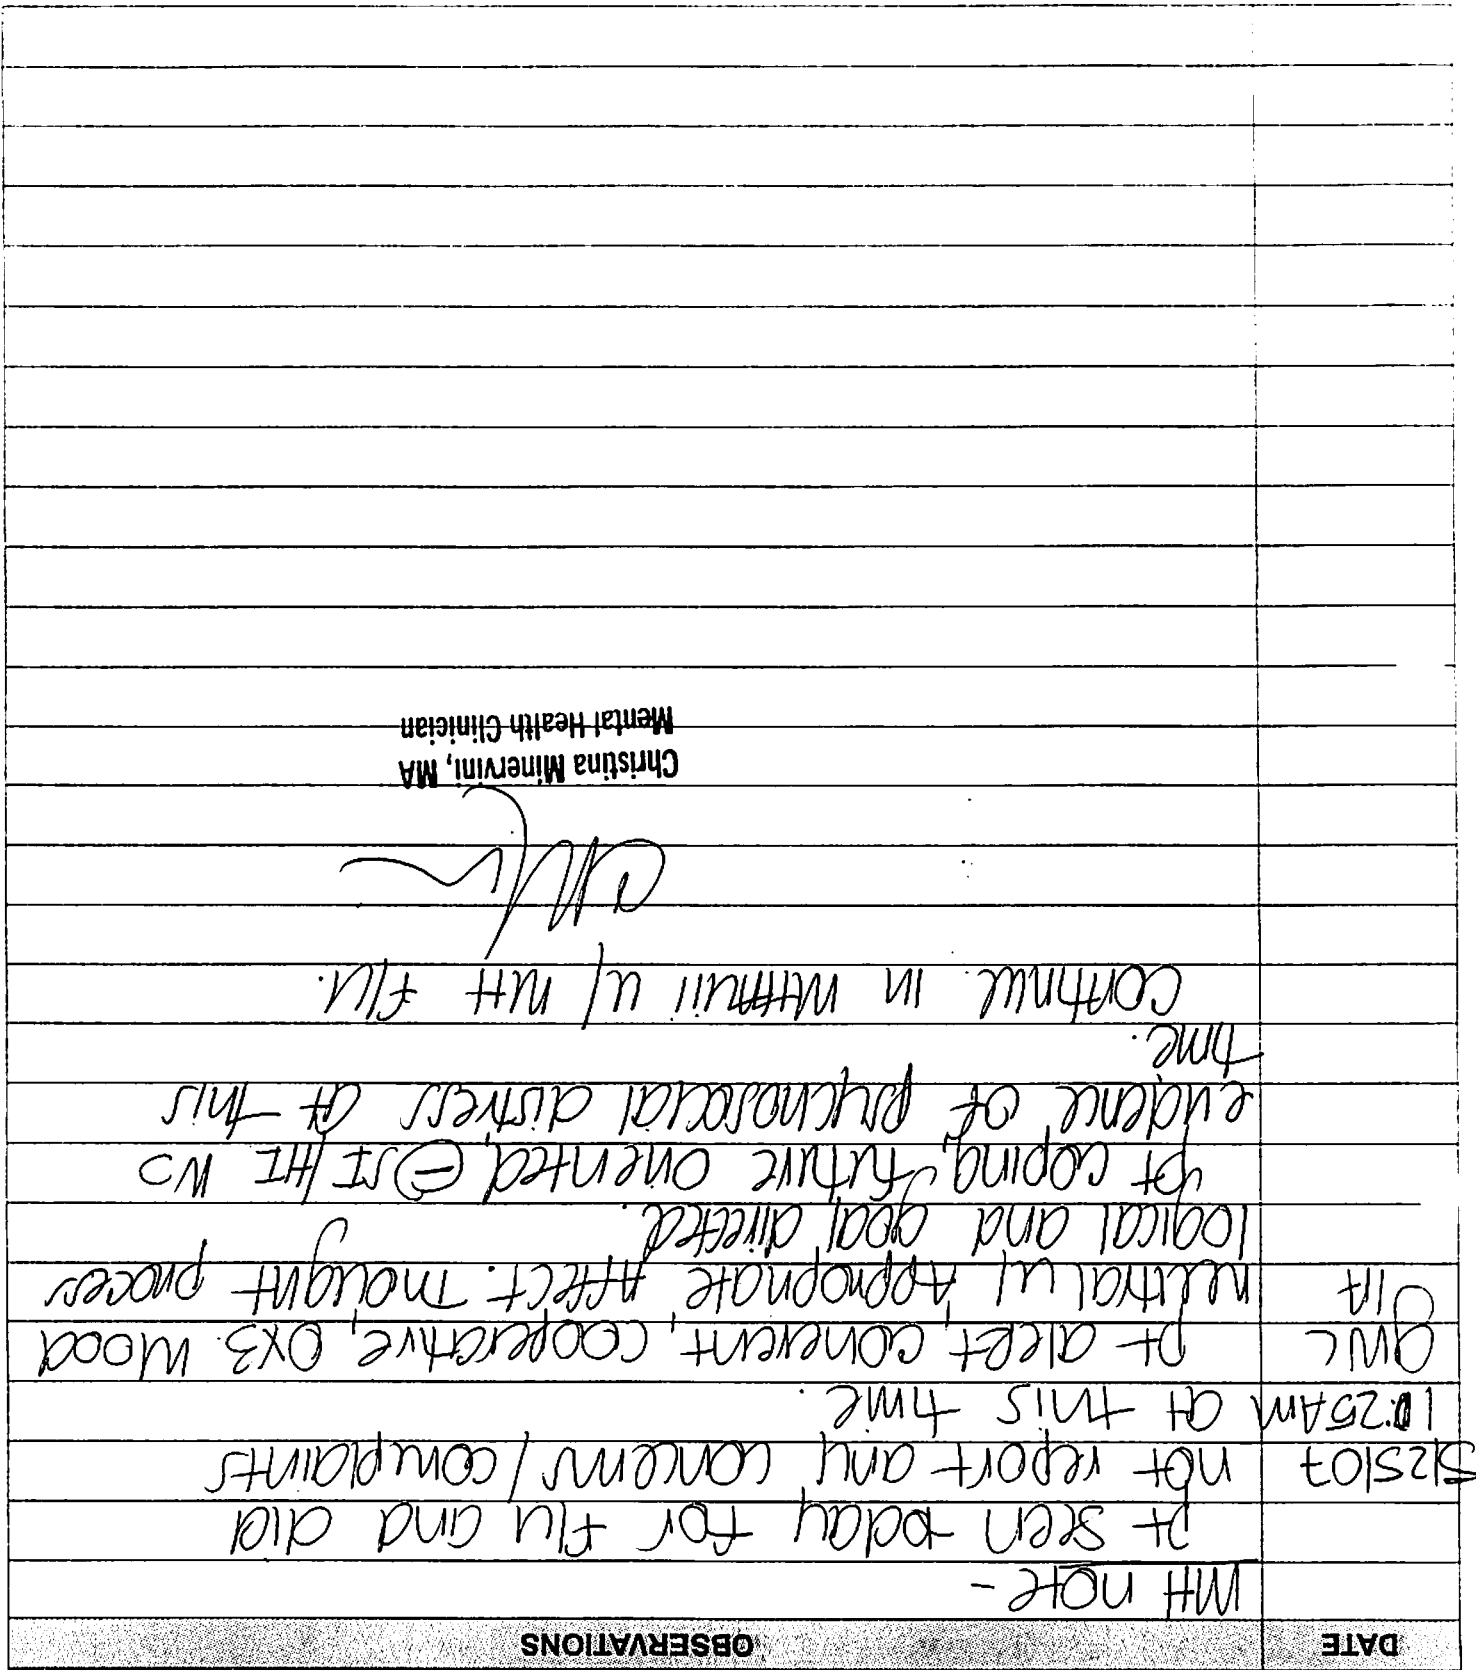 DATE OBSERVATIONS
MH note -
pt seen today for f/u and did
5/25/07 not report any concerns/complaints
10:25AM at this time.
pt alert, coherent, cooperative, 0x3. Mood
neutral w/ Appropriate Affect. Thought process
logical and goal directed.
pt coping, future oriented, ⊖SI/HI NO
evidence of psychosocial distress at this
time.
continue in w/ MH F/U.
Christina Minervini, MA
Mental Health Clinician